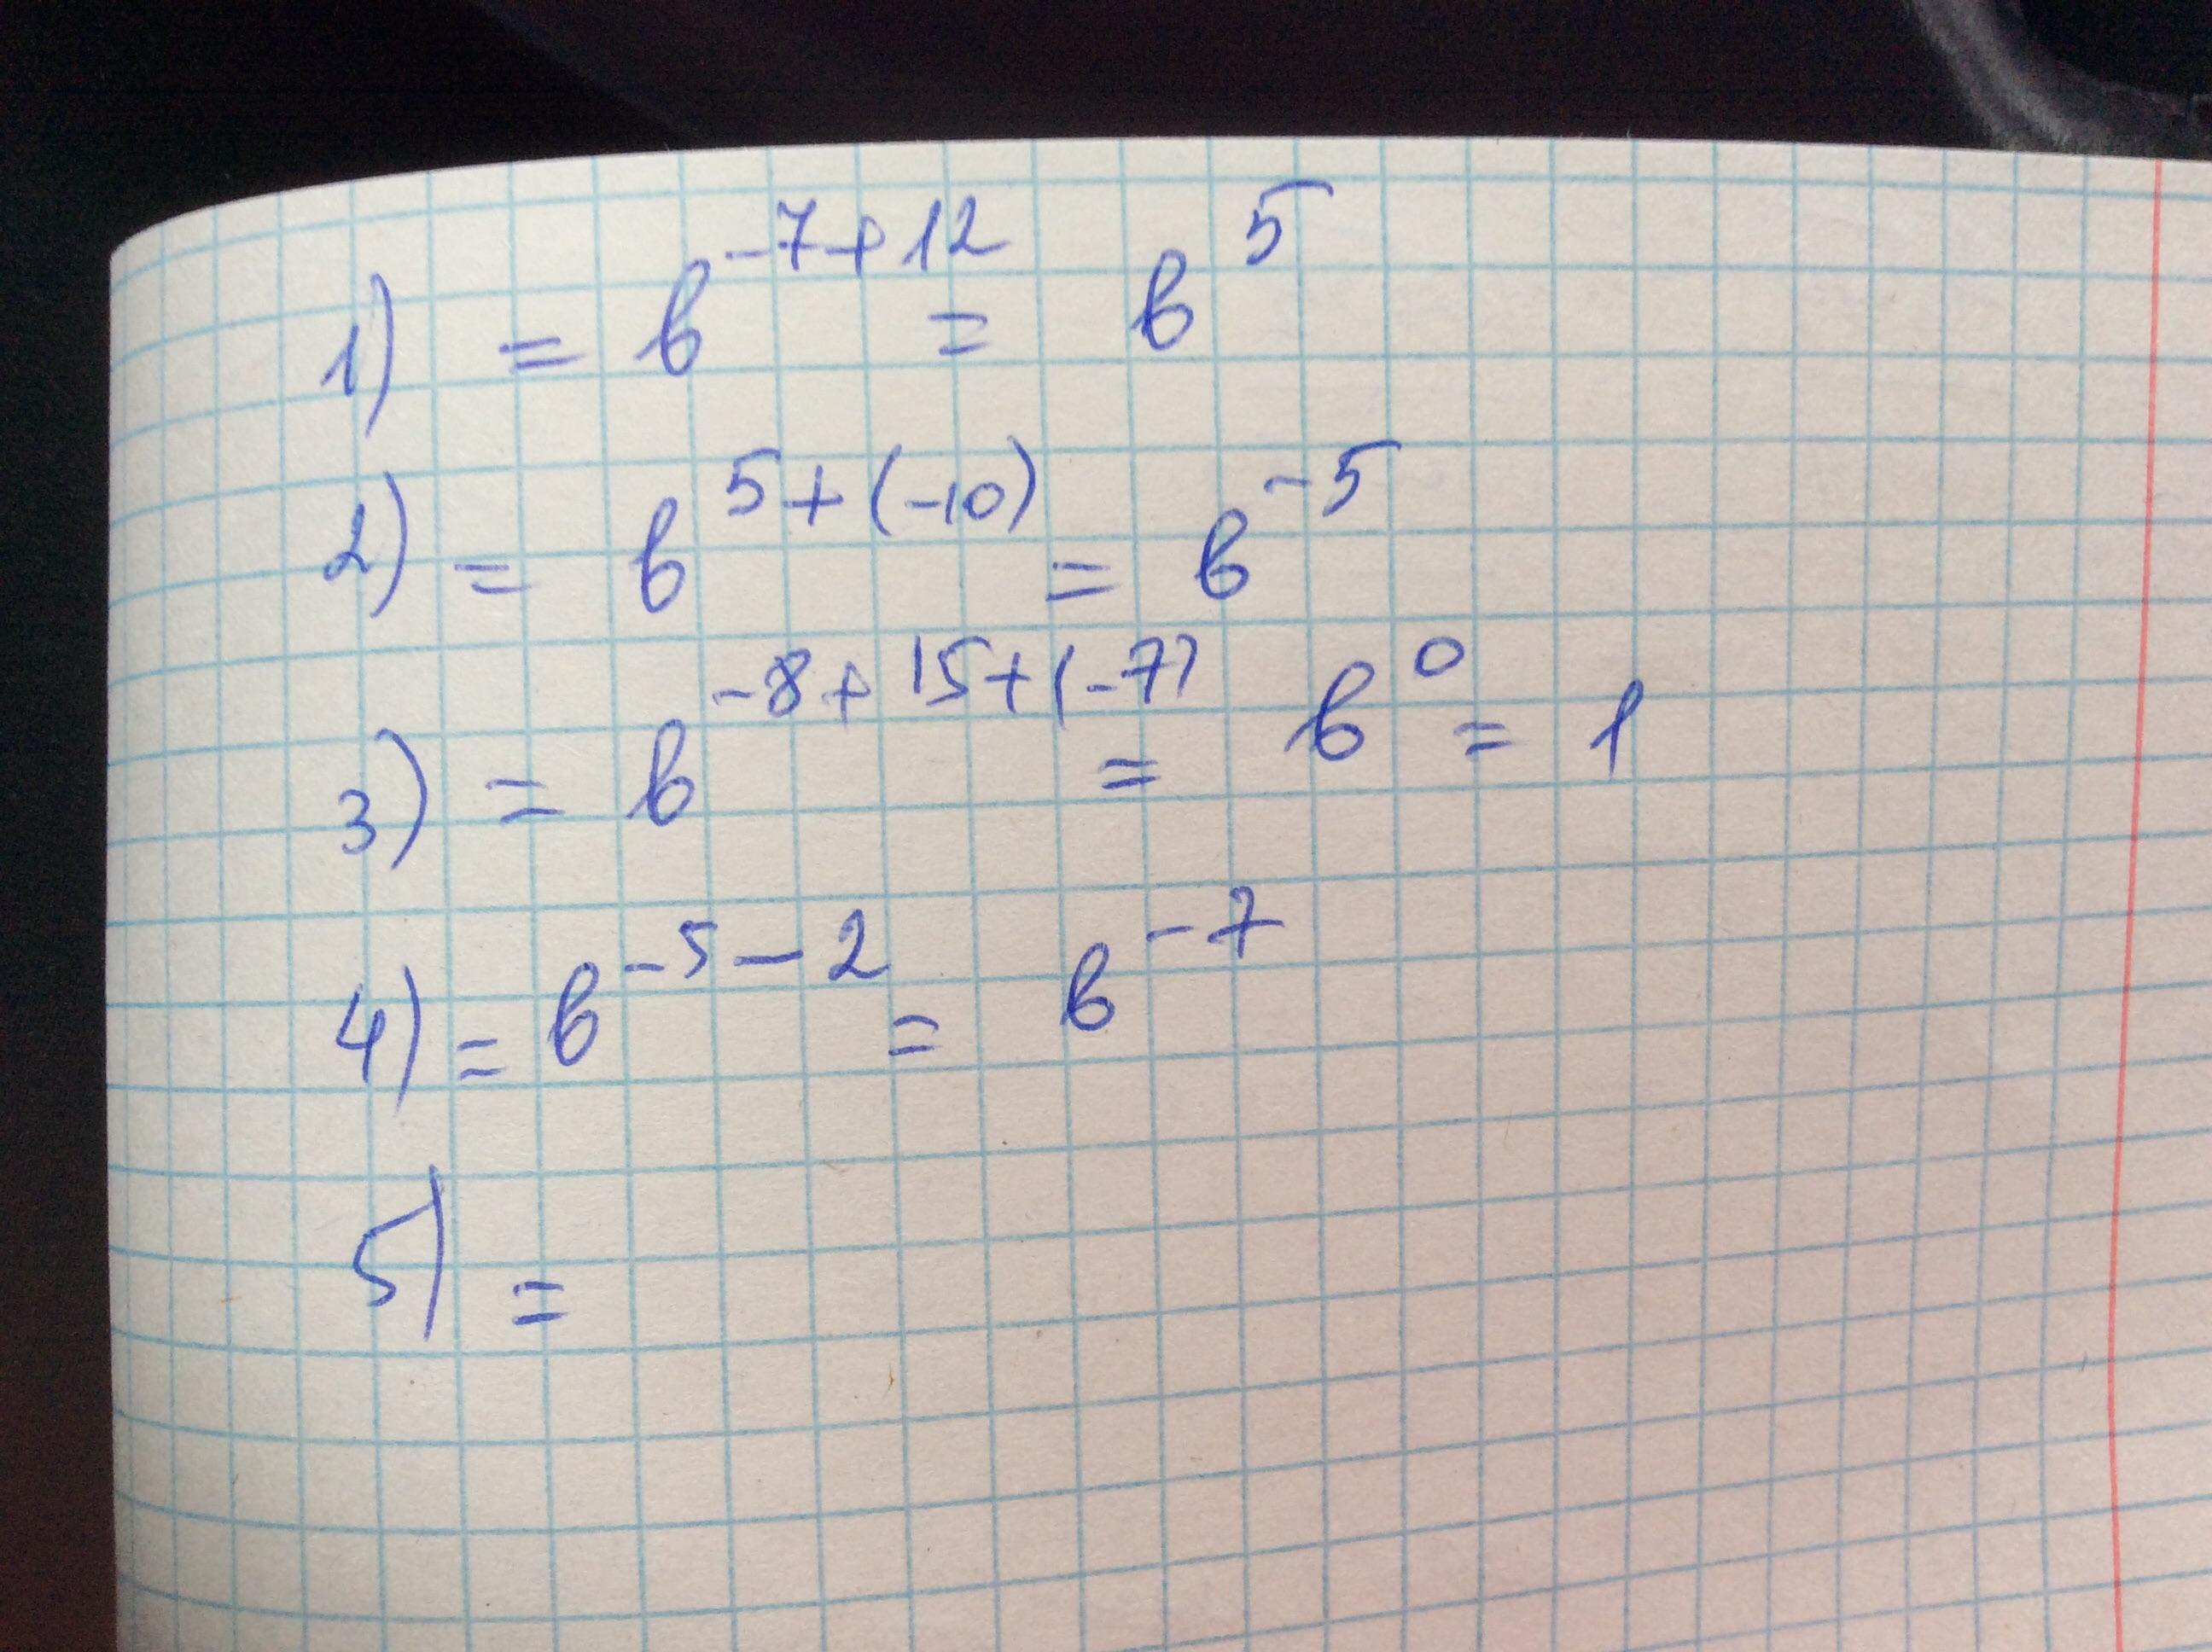 1) = b^{-7+12} = b^{5}
2) = b^{5+(-10)} = b^{-5}
3) = b^{-8+15+(-7)} = b^{0} = 1
4) = b^{-5-2} = b^{-7}
5) =